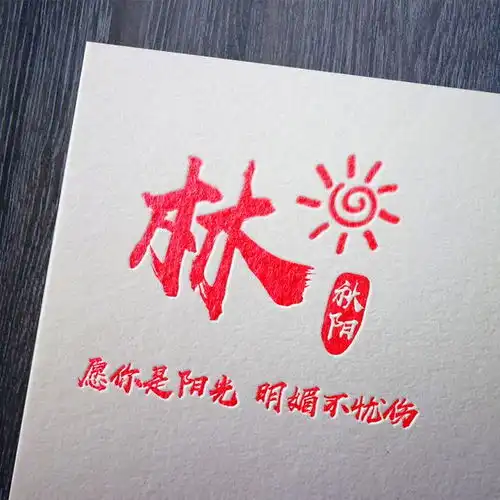 林
秋阳
愿你是阳光 明媚不忧伤